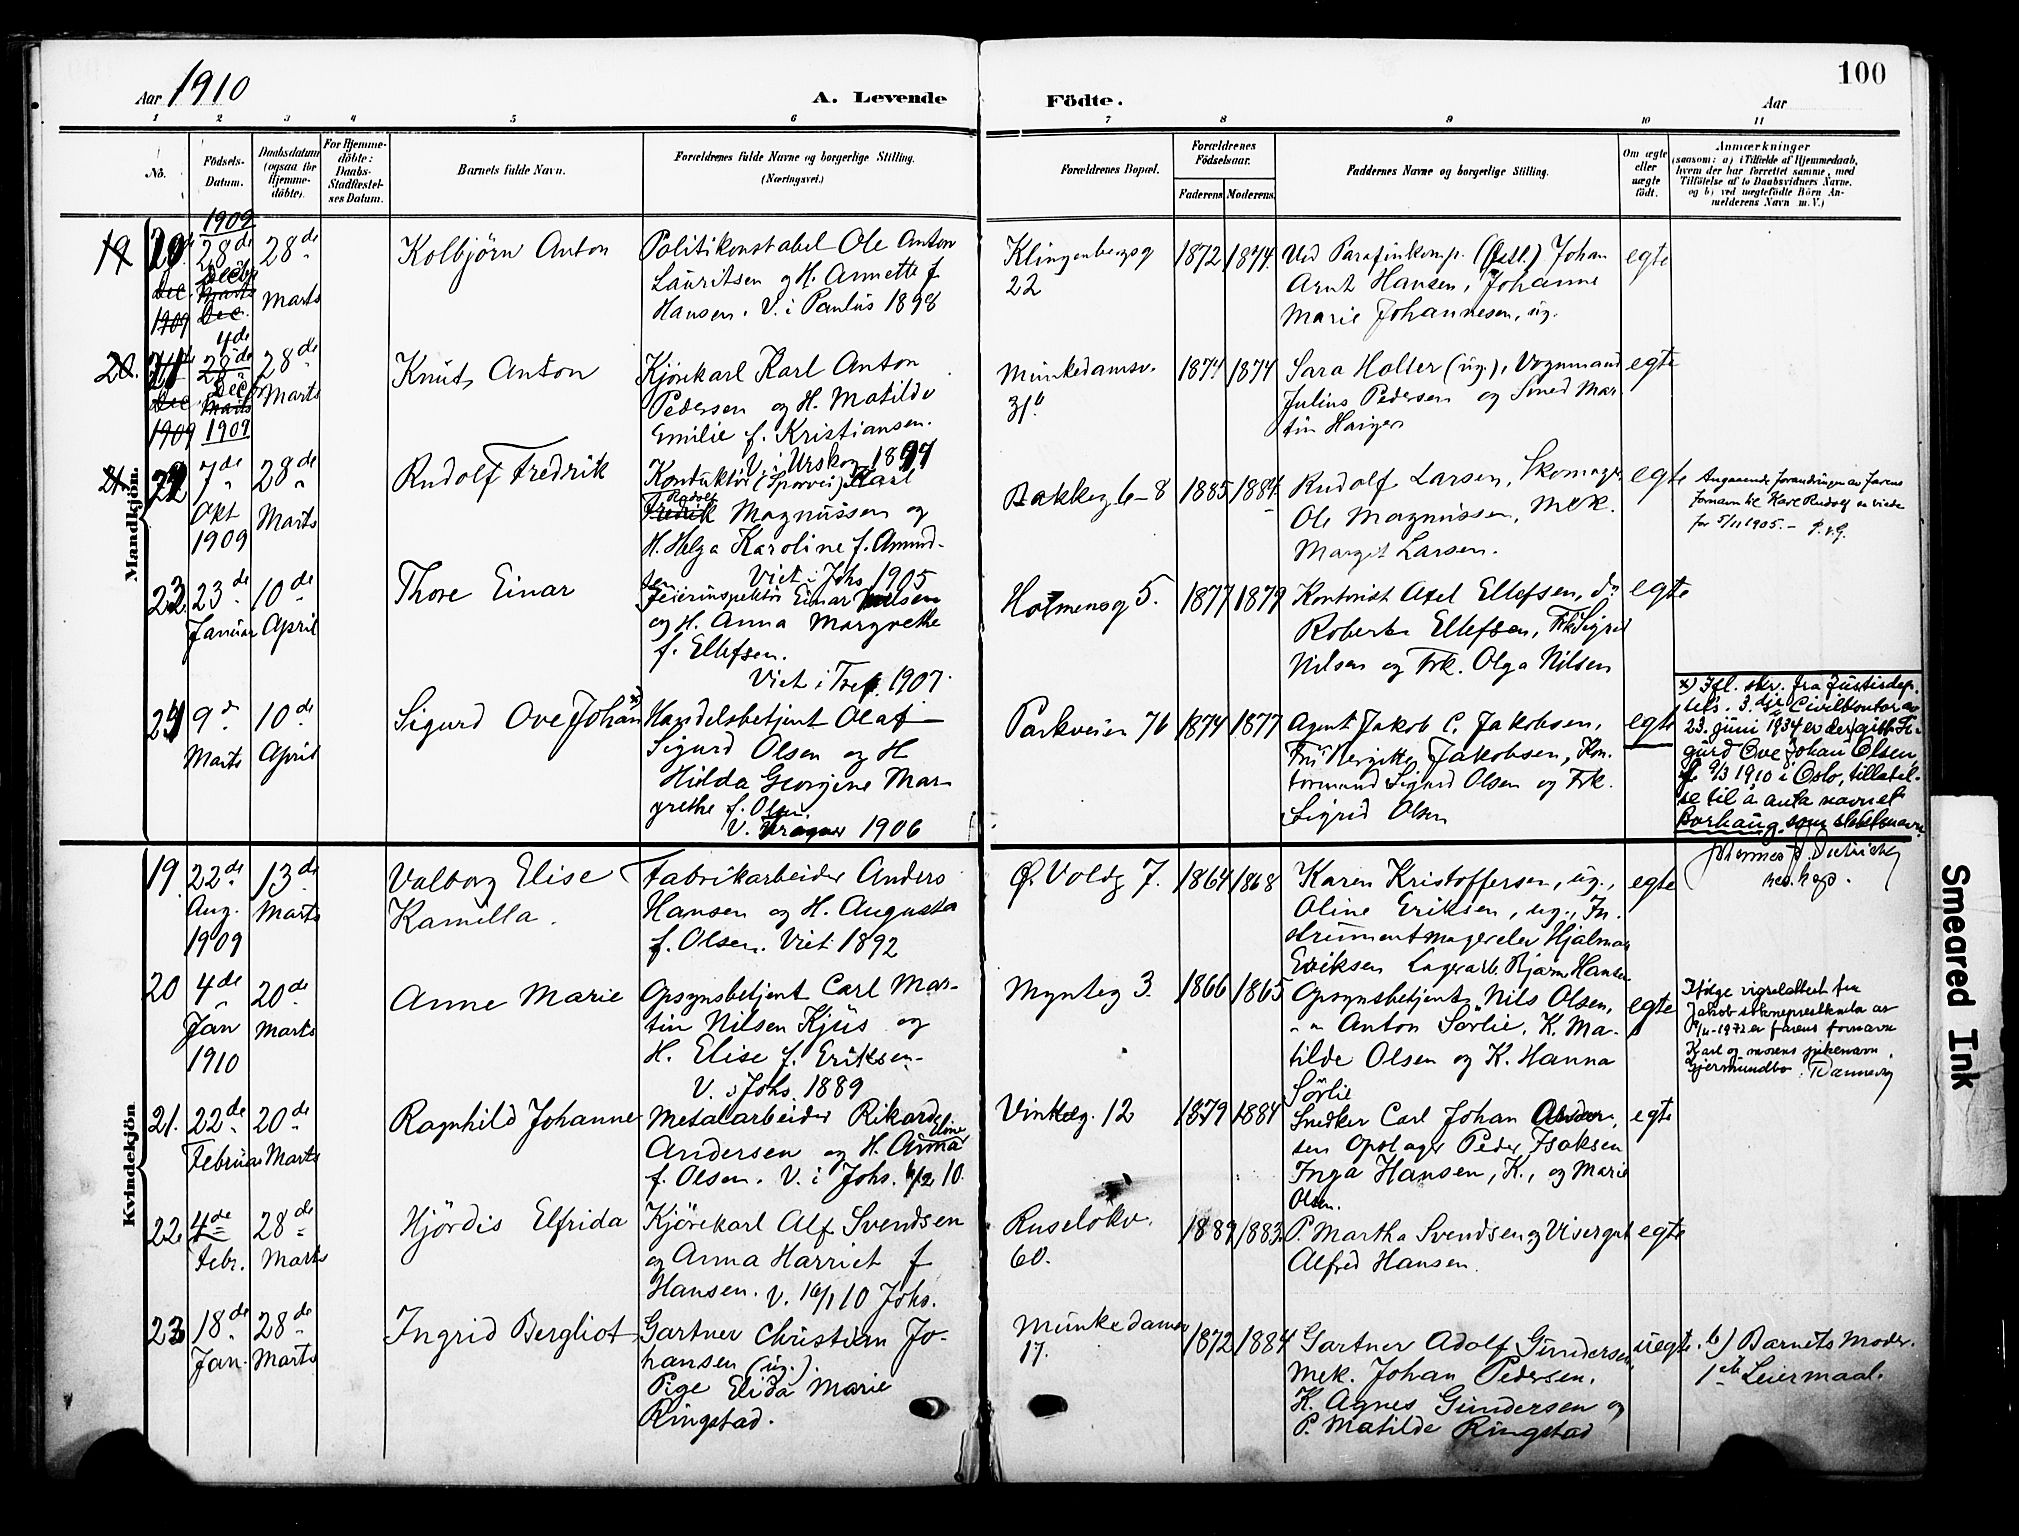 100
Aar 1910
A. Levende Födte.
Aar
1 2 3 4 5 6 7 8 9 10 11
No.
Födsels-
Datum.
Daabsdatum
(ogsaa for
Hjemme-
döbte).
For Hjemme-
döbte:
Daabs-
Stadfæstel-
ses Datum.
Barnets fulde Navn.
Forældrenes fulde Navne og borgerlige Stilling.
(Næringsvei.)
Forældrenes Bopæl.
Forældrenes
Födselsaar.
Faderens Moderens
Faddernes Navne og borgerlige Stilling.
Om ægte
eller
uægte
födt.
Anmærkninger
(saasom: a) i Tilfælde af Hjemmedaab,
hvem der har forrettet samme, med
Tilföielse af to Daabsvidners Navne.
og b) ved uægtefödte Börn An-
melderens Navn m. V.)
Mandkjön.
1909
28de
Decbr
28de
Marts
Kolbjörn Anton
Politikonstabel Ole Anton
Lauritsen og H. Annette f.
Hansen. V. i Paulus 1898
Klingenbergsg
22
1872 1874.
Ved Parafinkomp. Johan
Arnt Hansen, Johanne
Marie Johannesen, ug.
egte
20. 21
4de
Decb
1909
28de
Marts
Knut Anton
Kjörekarl Karl Anton
Pedersen og H. Matilde
Emilie f. Kristiansen.
V. i Urskog 1894
Munkedamsv.
31b
1874 1874
Sara Holter (ug.), Vognmand
Julius Pedersen og Smed Mar-
tin Haiger
egte
22
7de
Okt
1909
28de
Marts
Rudolf Fredrik
Konduktör (Sporvei) Karl
Rudolf
Fredrik Magnussen og
H. Helga Karoline f. Amund-
sen Viet i Johs 1905
Bakkeg 6-8
1885 1884
Rudolf Larsen, Skomager
Ole Magnussen, Mek.
Margit Larsen.
egte
Angaaende forandringen av farens
fornavn til Karl Rudolf se viede
for 5/11 1905.-
23
23de
Januar
10de
April
Thore Einar
Feierinspektör Einar Nilsen
og H. Anna Margrethe
f. Ellefsen.
Viet i Tref. 1907.
Holmensg 5.
1877 1879
Kontorist Axel Ellefsen, do
Robert Ellefsen, Frk Sigrid
Nilsen og Frk. Olga Nilsen
egte
24
9d
Marts
10de
April
Sigurd Ove Johan x)
Handelsbetjent Olaf
Sigurd Olsen og H
Hilda Georgine Mar-
grethe f. Olsen.
V. Uranger 1906
Parkveien 76
1874 1877
Agent Jakob C. Jakobsen,
Fru Bergitte Jakobsen, Kon-
tormand Sigurd Olsen og Frk.
Sigrid Olsen
egte
x) Ifl. skr. fra Justisdep.
tets. 3. Civilkontor av
23. juni 1934 er der gitt Si-
gurd Ove Johan Olsen,
f. 9/3 1910 i Oslo, tillatel-
se til å anta navnet
Borhaug som slektsnavn.
Kvindekjön
19.
22de
Aug.
1909
13de
Marts
Valborg Elise
Kamilla.
Fabrikarbeider Anders
Hansen og H. Augusta
f. Olsen. Viet 1892
Ø. Voldg 7.
1864 1868
Karen Kristoffersen, ug.,
Oline Eriksen, ug., In-
strumentmagerelev Hjalmar
Eriksen Lagerarb. Bjarne Hansen
egte
20
4de
Jan
1910
20de
Marts
Anne Marie
Opsynsbetjent Carl Mar-
tin Nilsen Kjus og
H. Elise f. Eriksen.
V. i Johs 1889
Myntg 3.
1866 1865
Opsynsbetjent Nils Olsen,
" " Anton Sörlie, K. Ma-
tilde Olsen og K. Hanna
Sörlie
egte
Ifölge vigselattest fra
Jakob sokneprestkontor av
/11-1972 er farens fornavn
Karl og morens pikenavn
Gjermundbo.
21.
22de
Februar
20de
Marts
Ragnhild Johanne
Metalarbeider Rikard
Andersen og H. Anna
Oline
f. Olsen. V. i Johs. 6/2 10.
Vinkelg. 12
1879 1884
Snedker Carl Johan Ander-
sen Opslager Peder Isaksen
Inga Hansen, K., og Marie
Olsen.
egte
22.
4de
Febr.
28de
Marts
Hjördis Elfrida
Kjörekarl Alf Svendsen
og Anna Harriet f
Hansen. V. 16/1 10 Johs.
Ruselökv.
60.
1889 1883.
P. Martha Svendsen og Visergut
Alfred Hansen.
egte
23
18de
Jan.
28de
Marts
Ingrid Bergliot
Gartner Christian Jo-
hansen (ug.).
Pige Elida Marie
Ringstad.
Munkedamsv
17.
1872 1884
Gartner Adolf Gundersen
Mek. Johan Pedersen,
K. Agnes Gundersen og
P. Matilde Ringstad
uegte.
b) Barnets Moder.
1ste Leiermaal.
Smeared Ink